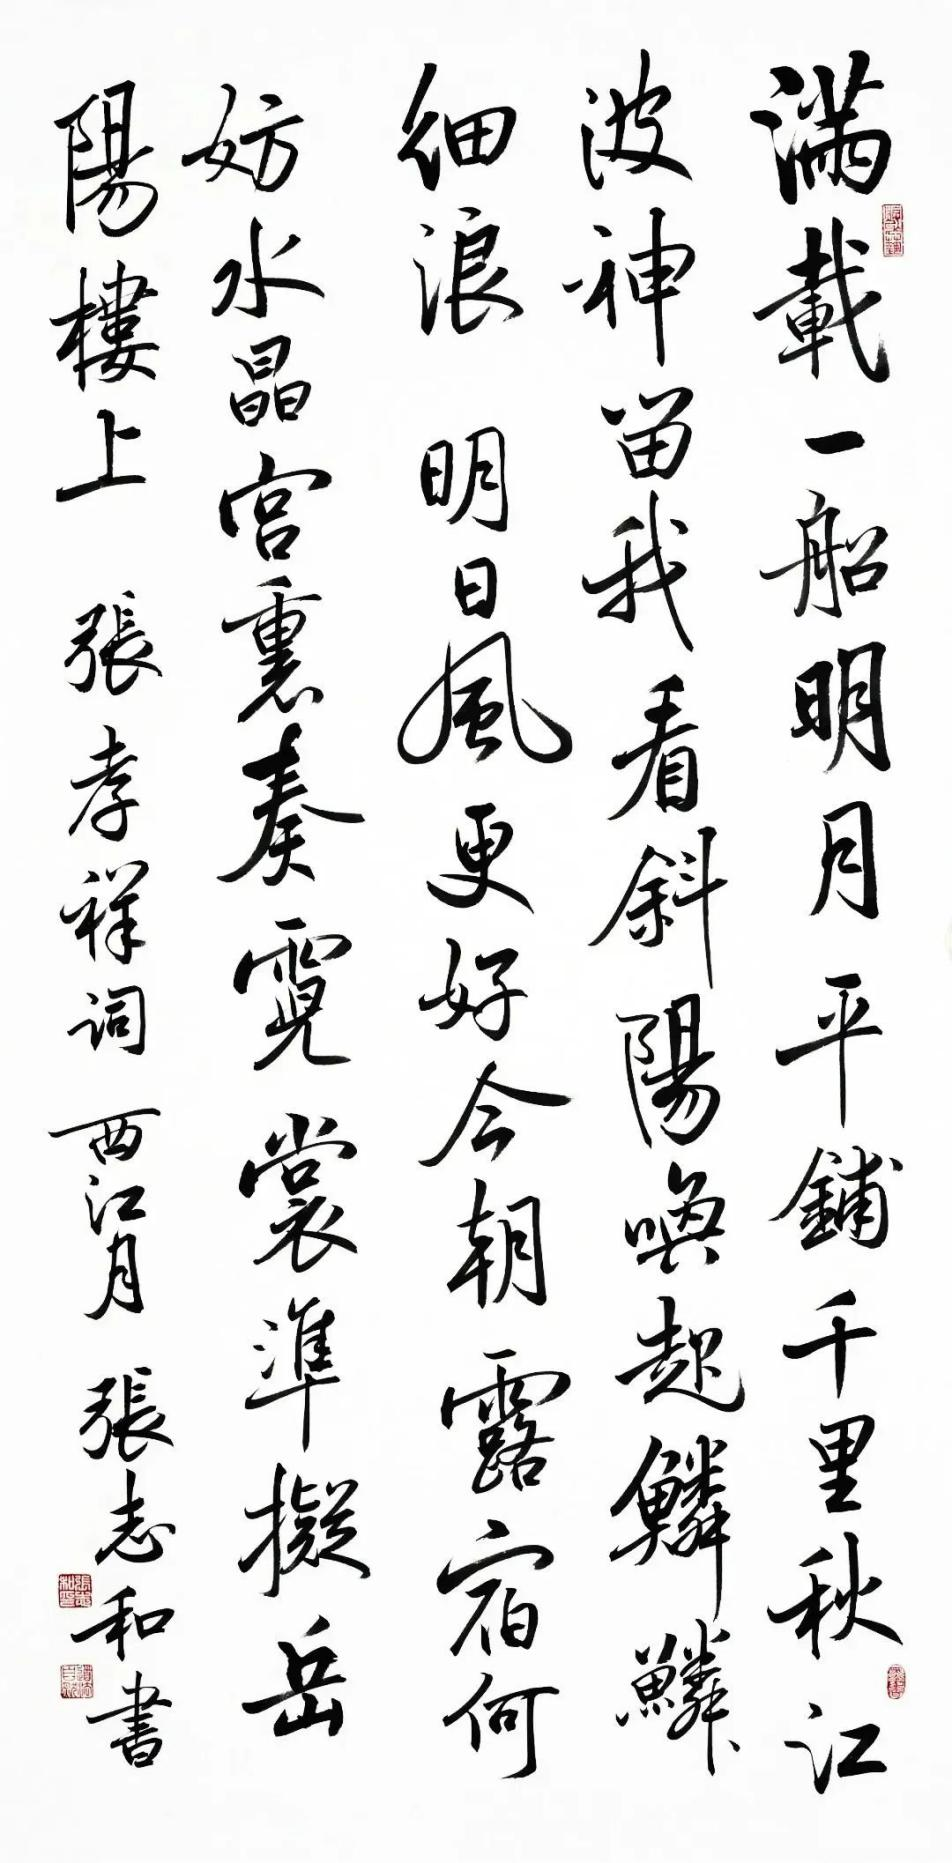 滿載一船明月平鋪千里秋江
波神留我看斜陽喚起鱗鱗
細浪 明日風更好今朝露宿何
妨水晶宮裏奏霓裳準擬岳
陽樓上 張孝祥詞 西江月 張志和書